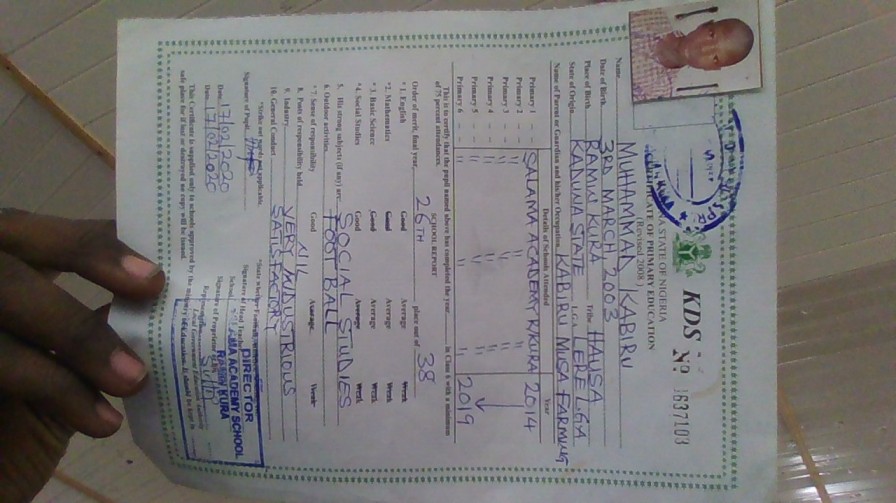 KDS Nº 1637103
KADUNA STATE OF NIGERIA
CERTIFICATE OF PRIMARY EDUCATION
(Revised 2008)
Name MUHAMMAD KABIRU
Date of Birth 3RD MARCH, 2003 Tribe HAUSA
Place of Birth RAMIN KURA L.G.A LERE L.G.A
State of Origin KADUNA STATE
Name of Parent or Guardian and his/her Occupation KABIRU MUSA FARMING
Details of Schools Attended Year
Primary 1 SALAMA ACADEMY R/KURA 2014
Primary 2 " " "
Primary 3 " " "
Primary 4 " " "
Primary 5 " " "
Primary 6 " " 2019
This is to certify that the pupil named above has completed the year in Class 6 with a minimum
of 75 percent attendances.
SCHOOL REPORT
Order of merit, final year, 26TH place out of 38
* 1. English Good Average Weak
*2. Mathematics Good Average Weak
* 3. Basic Science Good Average Weak
*4. Social Studies Good Average Weak
5. His strong subjects (if any) are SOCIAL STUDIES
6. Outdoor activities FOOT BALL
* 7. Sense of responsibility Good Average Weak
8. Posts of responsibility held NIL
9. Industry VERY INDUSTRIOUS
10. General Conduct SATISFACTORY
*Strike out words not applicable.
Signature of Pupil
Signature of Head Teacher
DIRECTOR
SALAMA ACADEMY SCHOOL
RAMIN KURA
Date 17/02/2020
Signature of Proprietor
Date 17/02/2020
Local Government Education Authority
This Certificate is supplied only to schools approved by the Ministry of Education. It should be kept in
safe place for if lost or destroyed no copy will be issued.